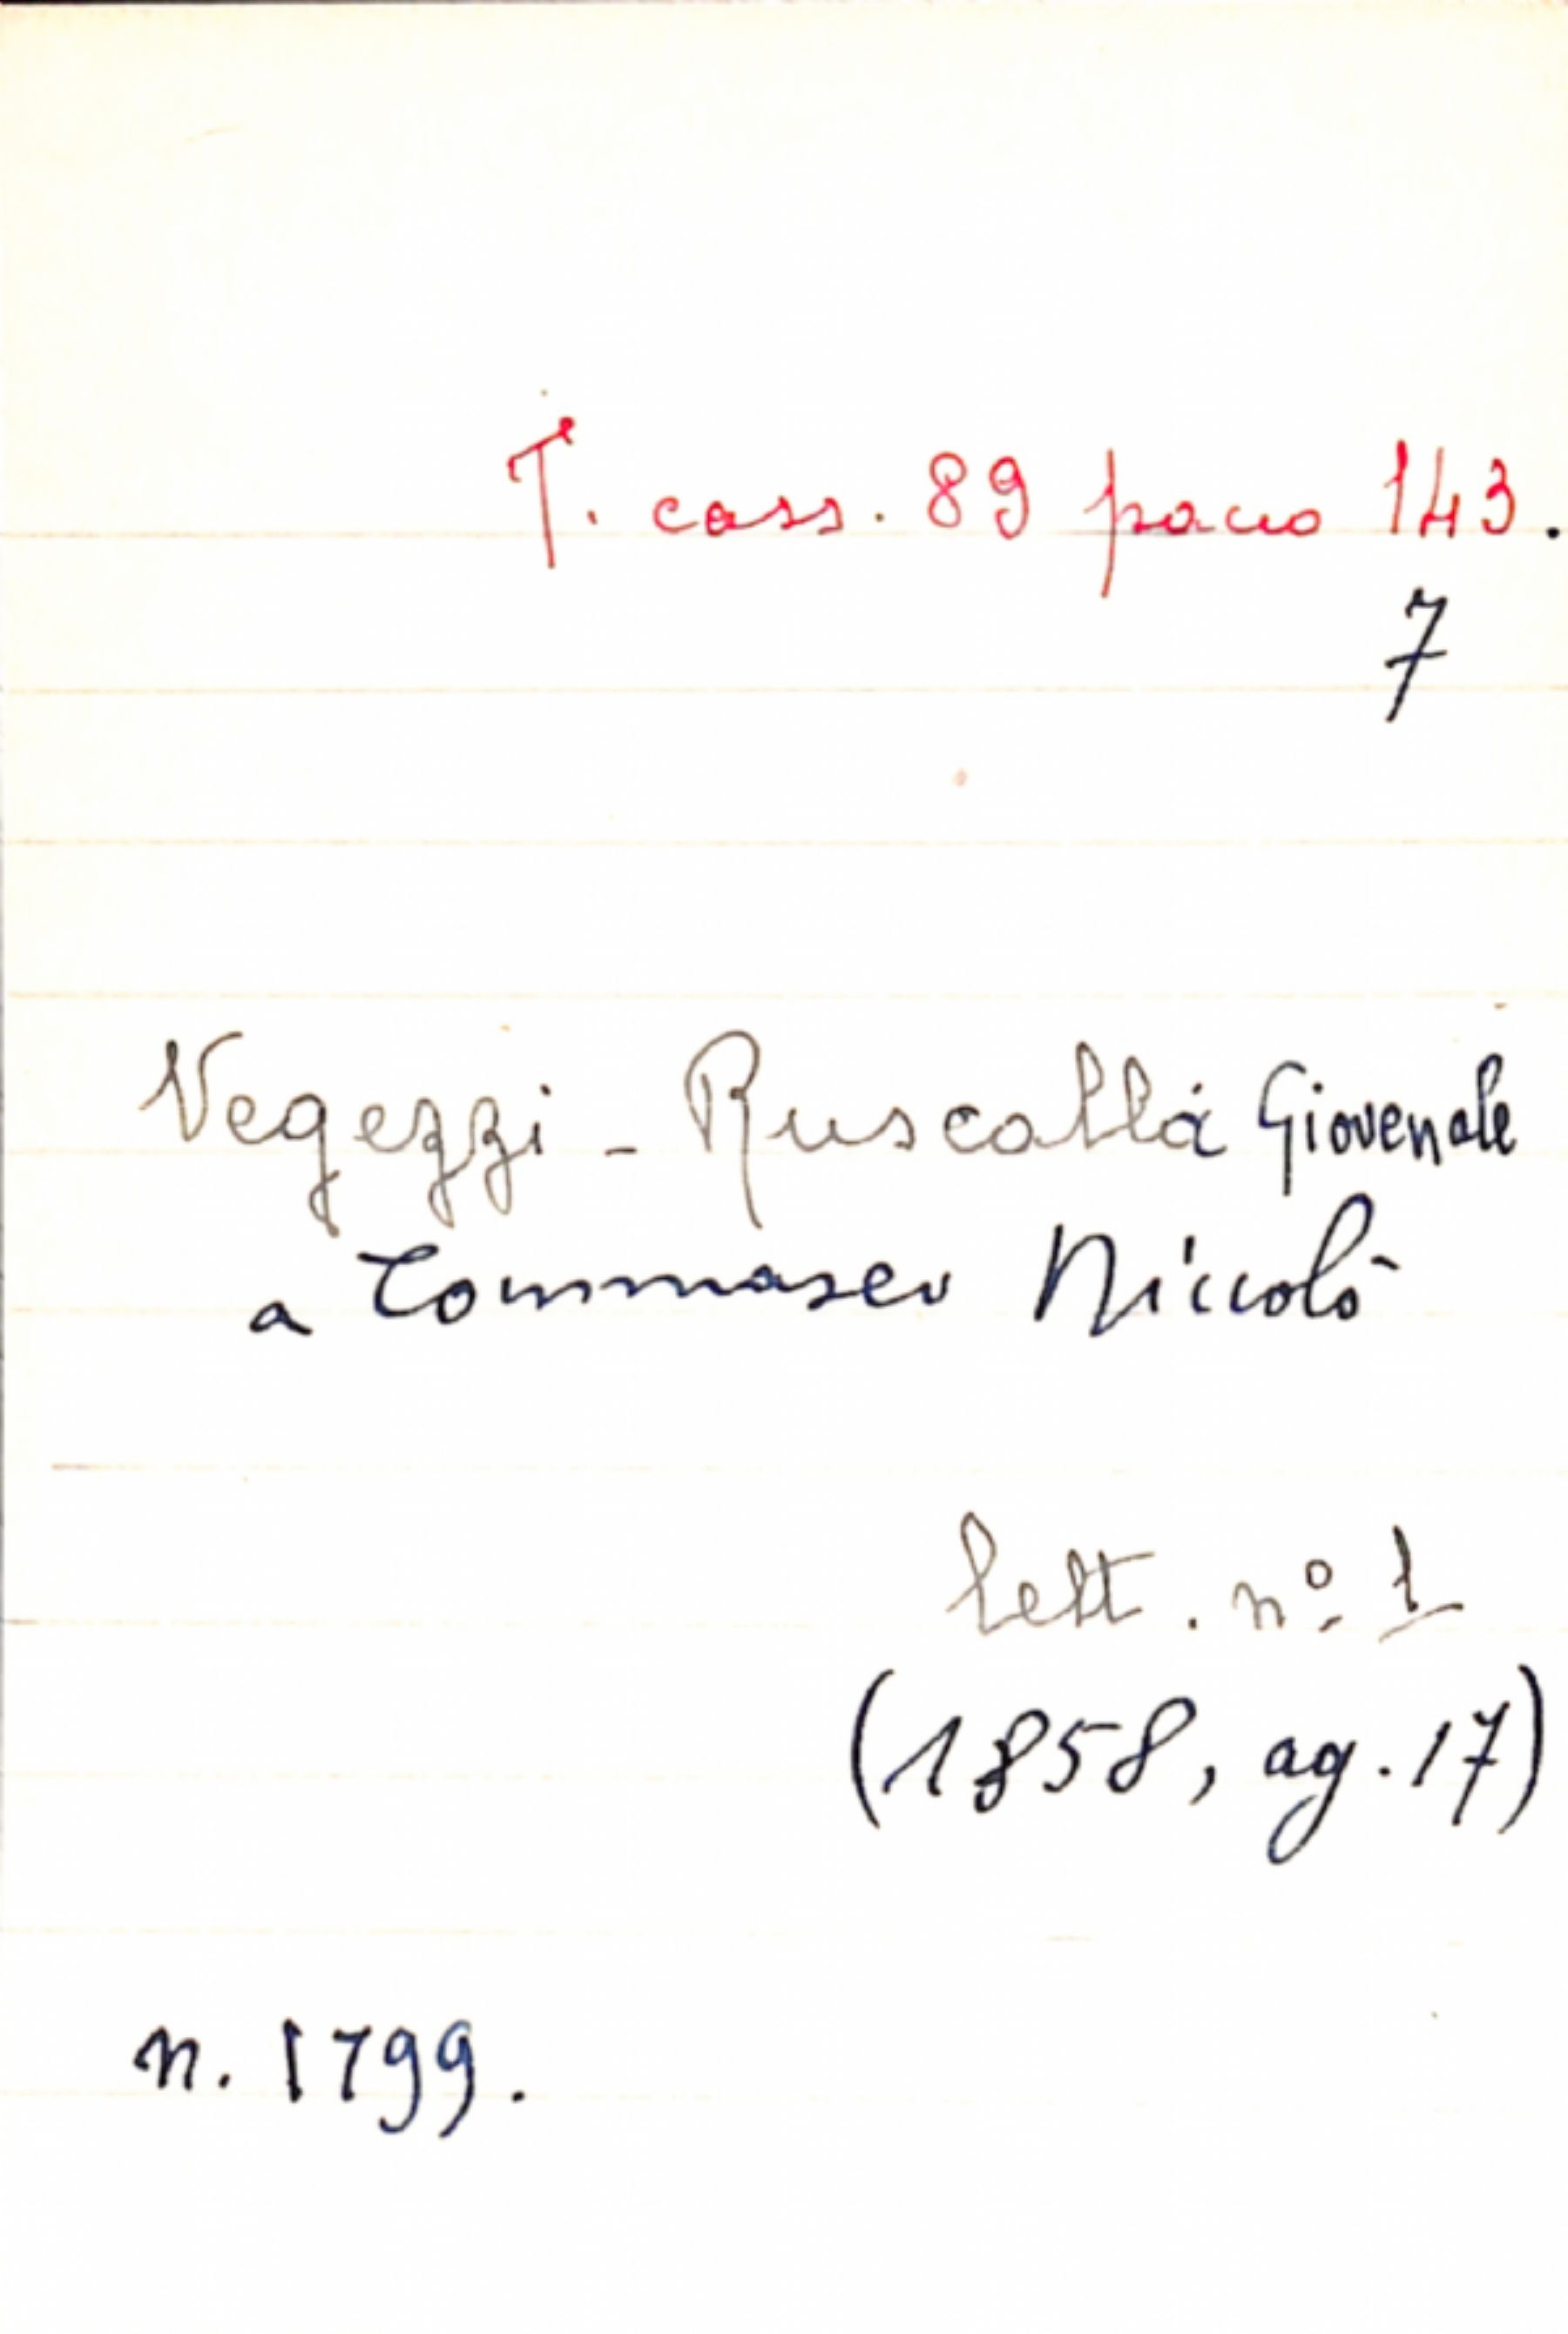 T. cass. 89 pacco 143.
7
Vegezzi - Ruscalla Giovenale
a Tommaseo Niccolò
lett. nº 1
(1858, ag. 17)
n. 1799.